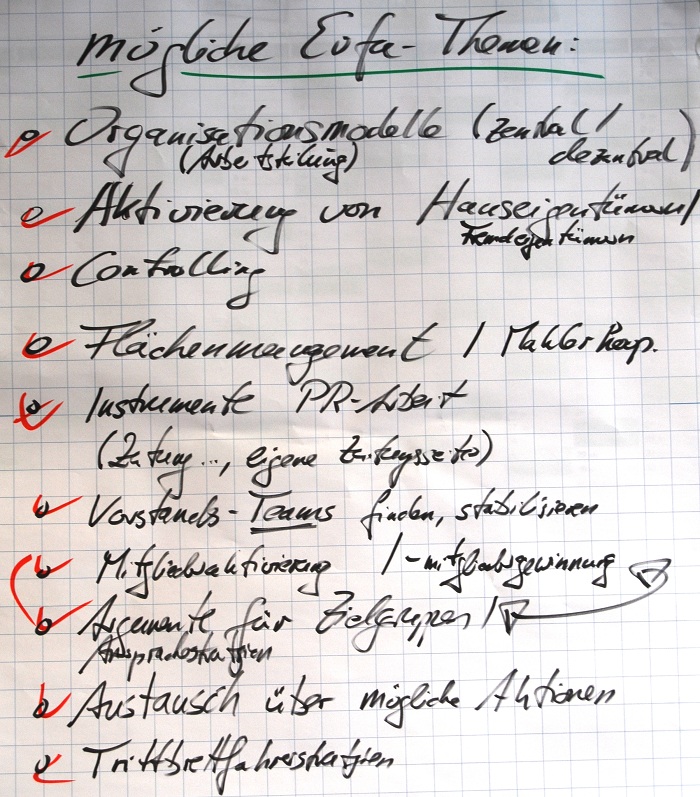 mögliche Erfa-Themen:
Organisationsmodelle (zentral/
(Arbeitsteilung) dezentral)
Aktivierung von Hauseigentümern/
Fremdeigentümern
Controlling
Flächenmanagement /
Instrumente PR-Arbeit
(Zeitung..., eigene Zeitungsseite)
Vorstands-Teams finden, stabilisieren
Mitgliederaktivierung /-mitgliedergewinnung
Argumente für Zielgruppen/
Ansprachestrategien
Austausch über mögliche Aktionen
Trittbrettfahrerstrategien